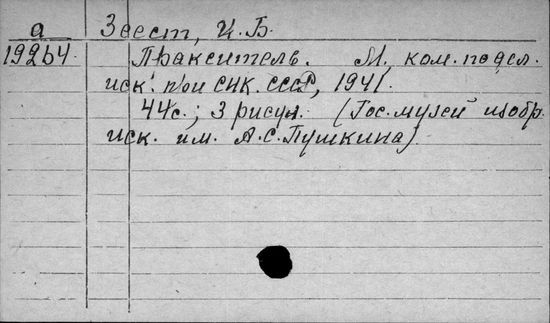 а Зеест, И.Б.
19264 Пракситель. М., ком. по дел.
иск. при СНК. СССР, 1941.
44с.; 3 рисун. (Гос. музей изобр.
иск. им. А.С.Пушкина)